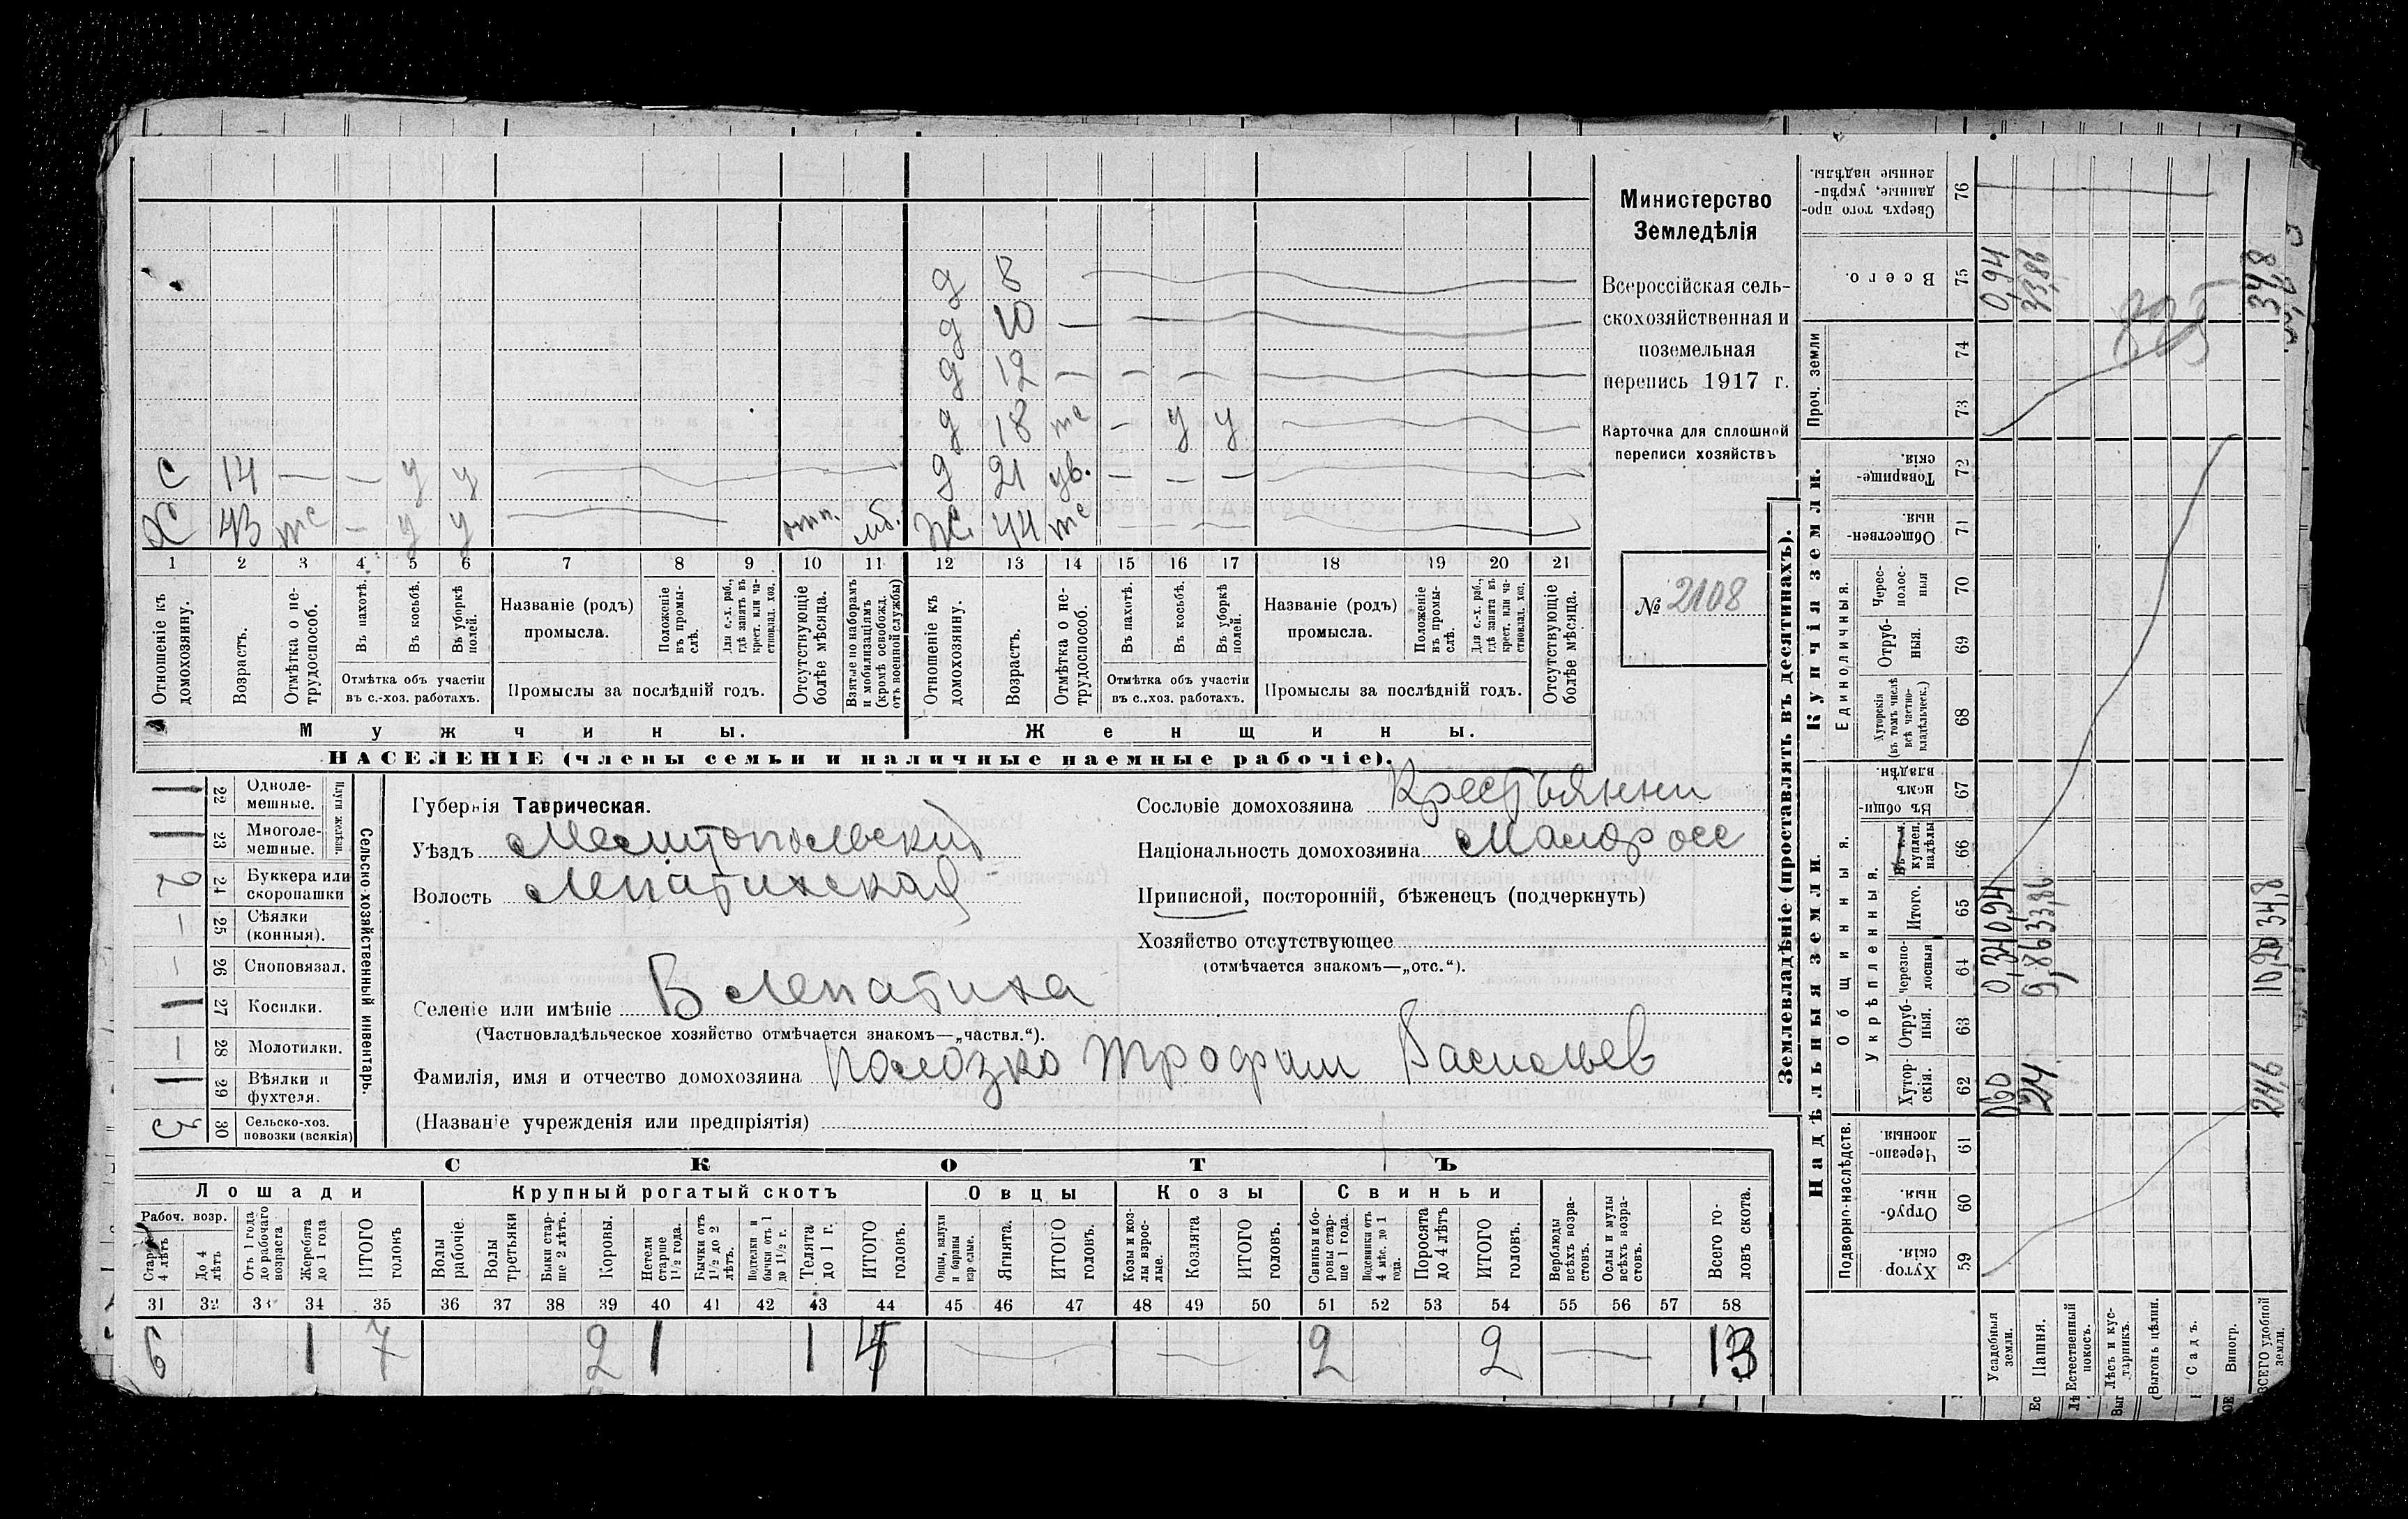 Министерство
Земледѣлія
Всероссійская сель-
скохозяйственная и
поземельная
перепись 1917 г.
Карточка для сплошной
переписи хозяйствъ
№ 2108
д 8
д 10 —
д 12 — — —
д 18 — у у
с 14 — — у у д 21 ув. — — —
Х 43 — у у отп. мб. Ж. 44
1 2 3 4 5 6 7 8 9 10 11 12 13 14 15 16 17 18 19 20 21
Отношеніе къ домохозяину.
Возрастъ.
Отмѣтка о нетрудоспособ.
Въ пахотѣ.
Въ косьбѣ.
Въ уборкѣ полей.
Отмѣтка объ участіи
въ с.-хоз. работахъ.
Названіе (родъ)
промысла.
Положеніе въ промыслѣ.
Для с.-х. раб., гдѣ занятъ въ крест. или частновлад. хоз.
Промыслы за послѣдній годъ.
Отсутствующіе болѣе мѣсяца.
Взятые по наборамъ и мобилизаціямъ (кромѣ освобожд. отъ военной службы)
Отношеніе къ домохозяину.
Возрастъ.
Отмѣтка о нетрудоспособ.
Въ пахотѣ.
Въ косьбѣ.
Въ уборкѣ полей.
Отмѣтка объ участіи
въ с.-хоз. работахъ.
Названіе (родъ)
промысла.
Положеніе въ промыслѣ.
Для с.-х. раб., гдѣ занята въ крест. или частновлад. хоз.
Промыслы за послѣдній годъ.
Отсутствующіе болѣе мѣсяца.
Мужчины.
Женщины.
НАСЕЛЕНІЕ (члены семьи и наличные наемные рабочіе).
Сельско-хозяйственный инвентарь.
Плуги желѣзн.
1 22 Одноле-
мешные.
1 23 Многоле-
мешные.
2 24 Буккера или
скоропашки
— 25 Сѣялки
(конныя).
— 26 Сноповязал.
1 27 Косилки.
— 28 Молотилки.
1 29 Вѣялки и
фухтеля.
3 30 Сельско-хоз.
повозки (всякія)
Губернія Таврическая.
Уѣздъ Мелитопольский
Волость Лепатихская
Селеніе или имѣніе В Лепатиха
(Частновладѣльческое хозяйство отмѣчается знакомъ—„частвл.“).
Фамилія, имя и отчество домохозяина Колозко Трофим Васильев
(Названіе учрежденія или предпріятія)
Сословіе домохозяина Крестьянин
Національность домохозяина Малоросс
Приписной, посторонній, бѣженецъ (подчеркнуть)
Хозяйство отсутствующее
(отмѣчается знакомъ—„отс.“).
СКОТЪ
Лошади
Крупный рогатый скотъ
Овцы
Козы
Свиньи
Рабоч. возр.
Старше 4 лѣтъ
До 4 лѣтъ
Отъ 1 года до рабочаго возраста
Жеребята до 1 года
ИТОГО головъ
Волы рабочіе.
Волы третьяки
Быки старше 2 лѣтъ.
Коровы.
Нетели старше 1 1/2 года.
Бычки отъ 1 1/2 до 2 лѣтъ.
Подтелки и бычки отъ 1 до 1 1/2 г.
Телята до 1 г.
ИТОГО головъ.
Овцы, валухи и бараны взрослые.
Ягнята.
ИТОГО головъ.
Козы и козлы взрослые.
Козлята
ИТОГО головъ.
Свиньи и боровы старше 1 года.
Подсвинки отъ 4 мѣс. до 1 года.
Поросята до 4 лѣтъ
ИТОГО головъ.
Верблюды всѣхъ возрастовъ.
Ослы и мулы всѣхъ возрастовъ.
Всего головъ скота.
31 32 33 34 35 36 37 38 39 40 41 42 43 44 45 46 47 48 49 50 51 52 53 54 55 56 57 58
6 1 7 2 1 1 4 2 2 13
Землевладѣніе (проставлять въ десятинахъ).
Надѣльныя земли.
Купчія земли.
Проч. земли
Подворно-наслѣдств.
Общинныя.
Укрѣпленныя.
Единоличныя.
Сверхъ того проданные, укрѣпленные надѣлы. 76
Всего. 75
74
73
Товарищескія. 72
Общественныя. 71
Чересполосныя 70
Отрубныя. 69
Хуторскія (въ томъ числѣ всѣ частновладѣльческ.) 68
Въ общинномъ владѣн. 67
куплен. надѣлы 66
Итого. 65
Черезполосныя 64
Отрубныя. 63
Хуторскія. 62
Черезполосныя. 61
Отрубныя. 60
Хуторскія 59
Усадебныя земли.
Пашня.
Естественный покосъ.
Лѣсъ и кустарникъ.
(Выгонъ цѣлин.
Садъ.
Виногр.
ВСЕГО удобной земли.
0,60 0,34 0,94 0,94
24 9,86 33,86 33,86
24,6 10,20 34,8 34,8
835